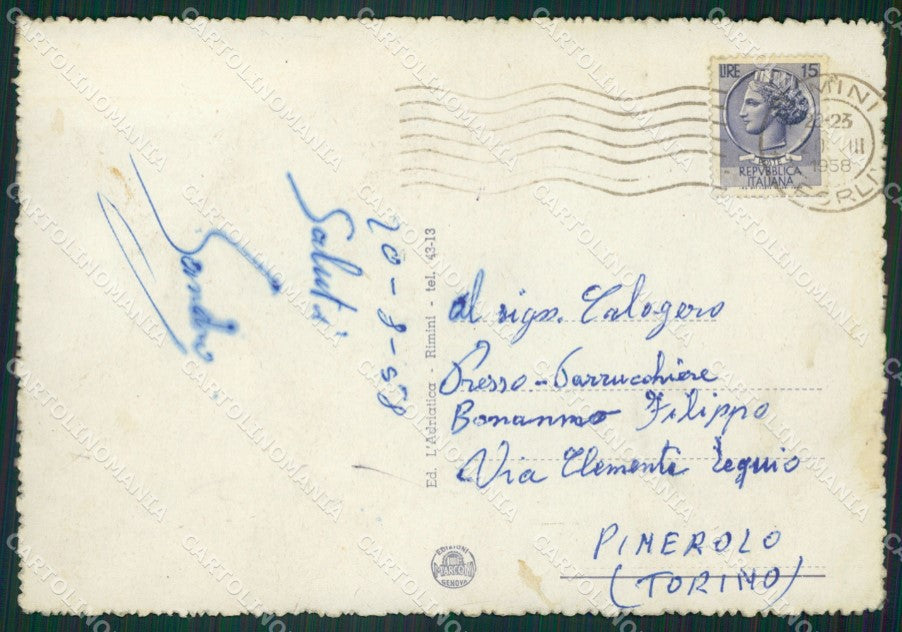 LIRE 15
REPVBBLICA
ITALIANA
RIMINI
22-23
VIII
1958
FORLI
20-8-58
Saluti
Sandro
Ed. L'Adriatica - Rimini - tel. 43-13
al sign. Calogero
Presso - Parrucchiere
Bonanno Filippo
Via Clemente Lequio
PINEROLO
(TORINO)
EDIZIONI
GENOVA
CARTOLINOMANIA